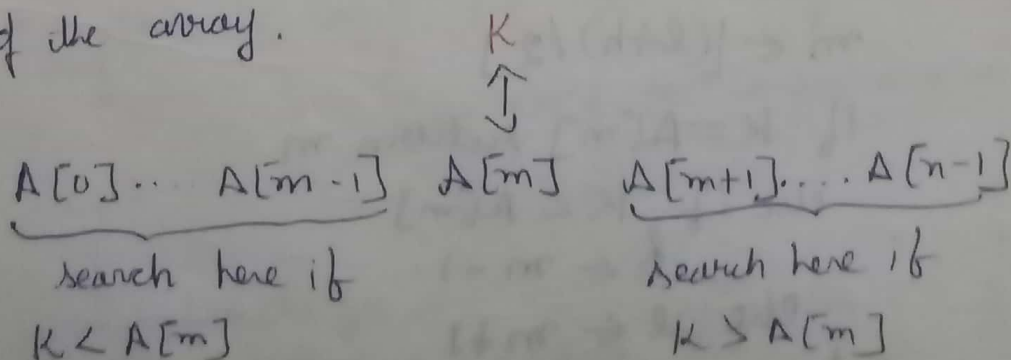 of the array. K
A[0].. A[m-1] A[m] A[m+1]..... A[n-1]
search here if search here if
K < A[m] K > A[m]